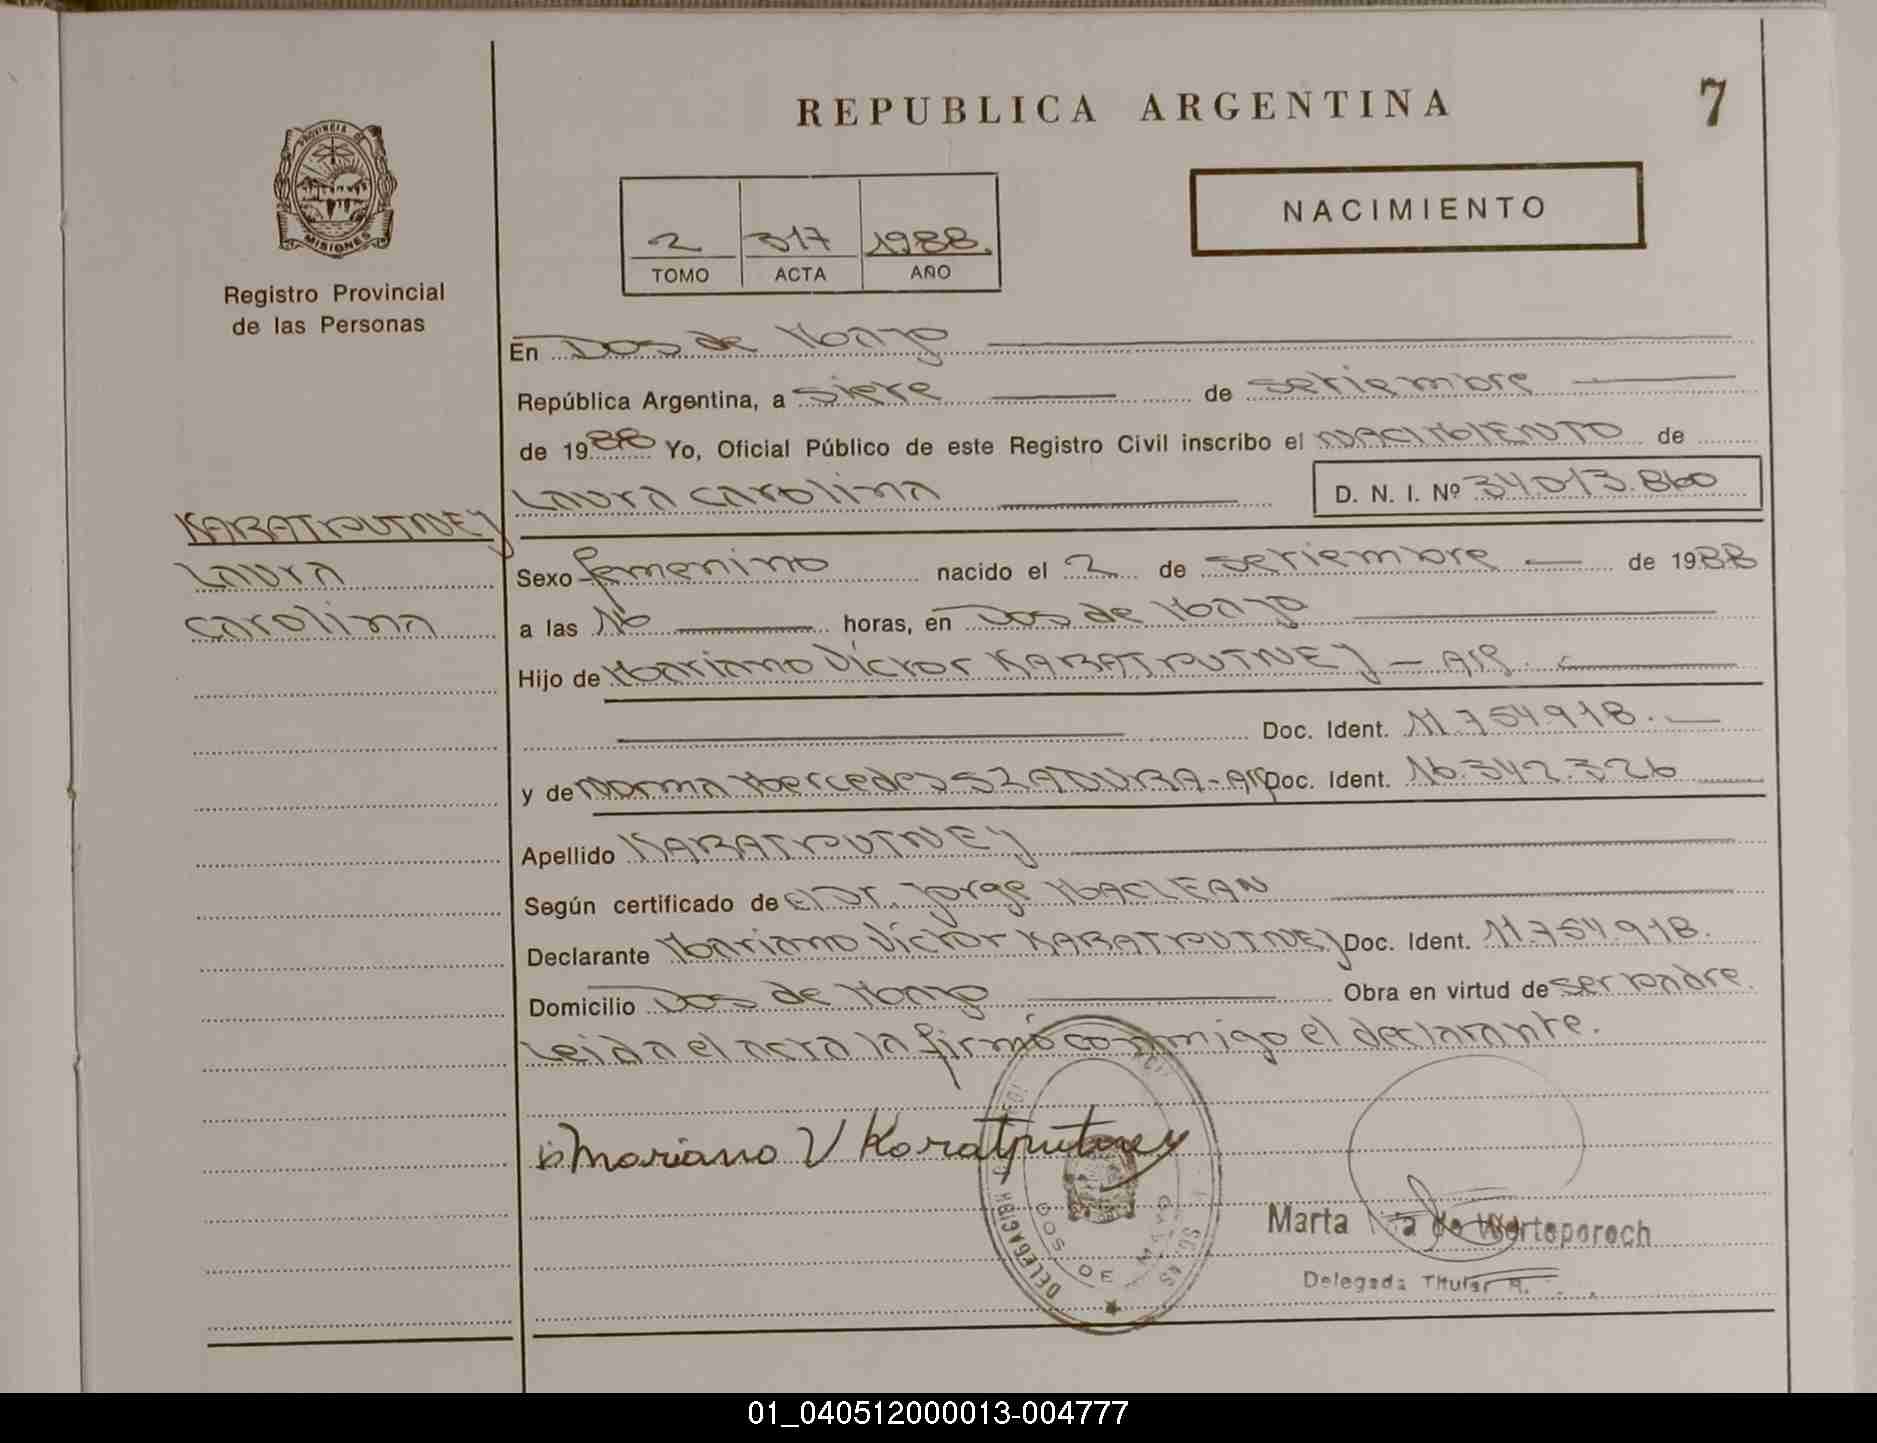 REPUBLICA ARGENTINA
7
PROVINCIA DE
MISIONES
Registro Provincial
de las Personas
2 317 1988.
TOMO ACTA AÑO
NACIMIENTO
En Dos de Mayo
República Argentina, a siete de setiembre
de 1988 Yo, Oficial Público de este Registro Civil inscribo el NACIMIENTO de
Laura Carolina D. N. I. Nº 34.013.860
KARATPUTNEY
Laura
Carolina
Sexo femenino nacido el 2 de setiembre de 1988
a las 16 horas, en Dos de Mayo
Hijo de Mariano Victor KARATPUTNEY - Arg.
Doc. Ident. 11.754.918.
y de Norma Mercedes SZADURA - Arg Doc. Ident. 16.342.326
Apellido KARATPUTNEY
Según certificado de el Dr. Jorge MACLEAN
Declarante Mariano Victor KARATPUTNEY Doc. Ident. 11.754.918.
Domicilio Dos de Mayo Obra en virtud de ser padre.
Leida el acta la firmó conmigo el declarante.
Mariano V Karatputney
DELEGACION
DOS DE MAYO
Marta de
Delegada Titular
01_040512000013-004777